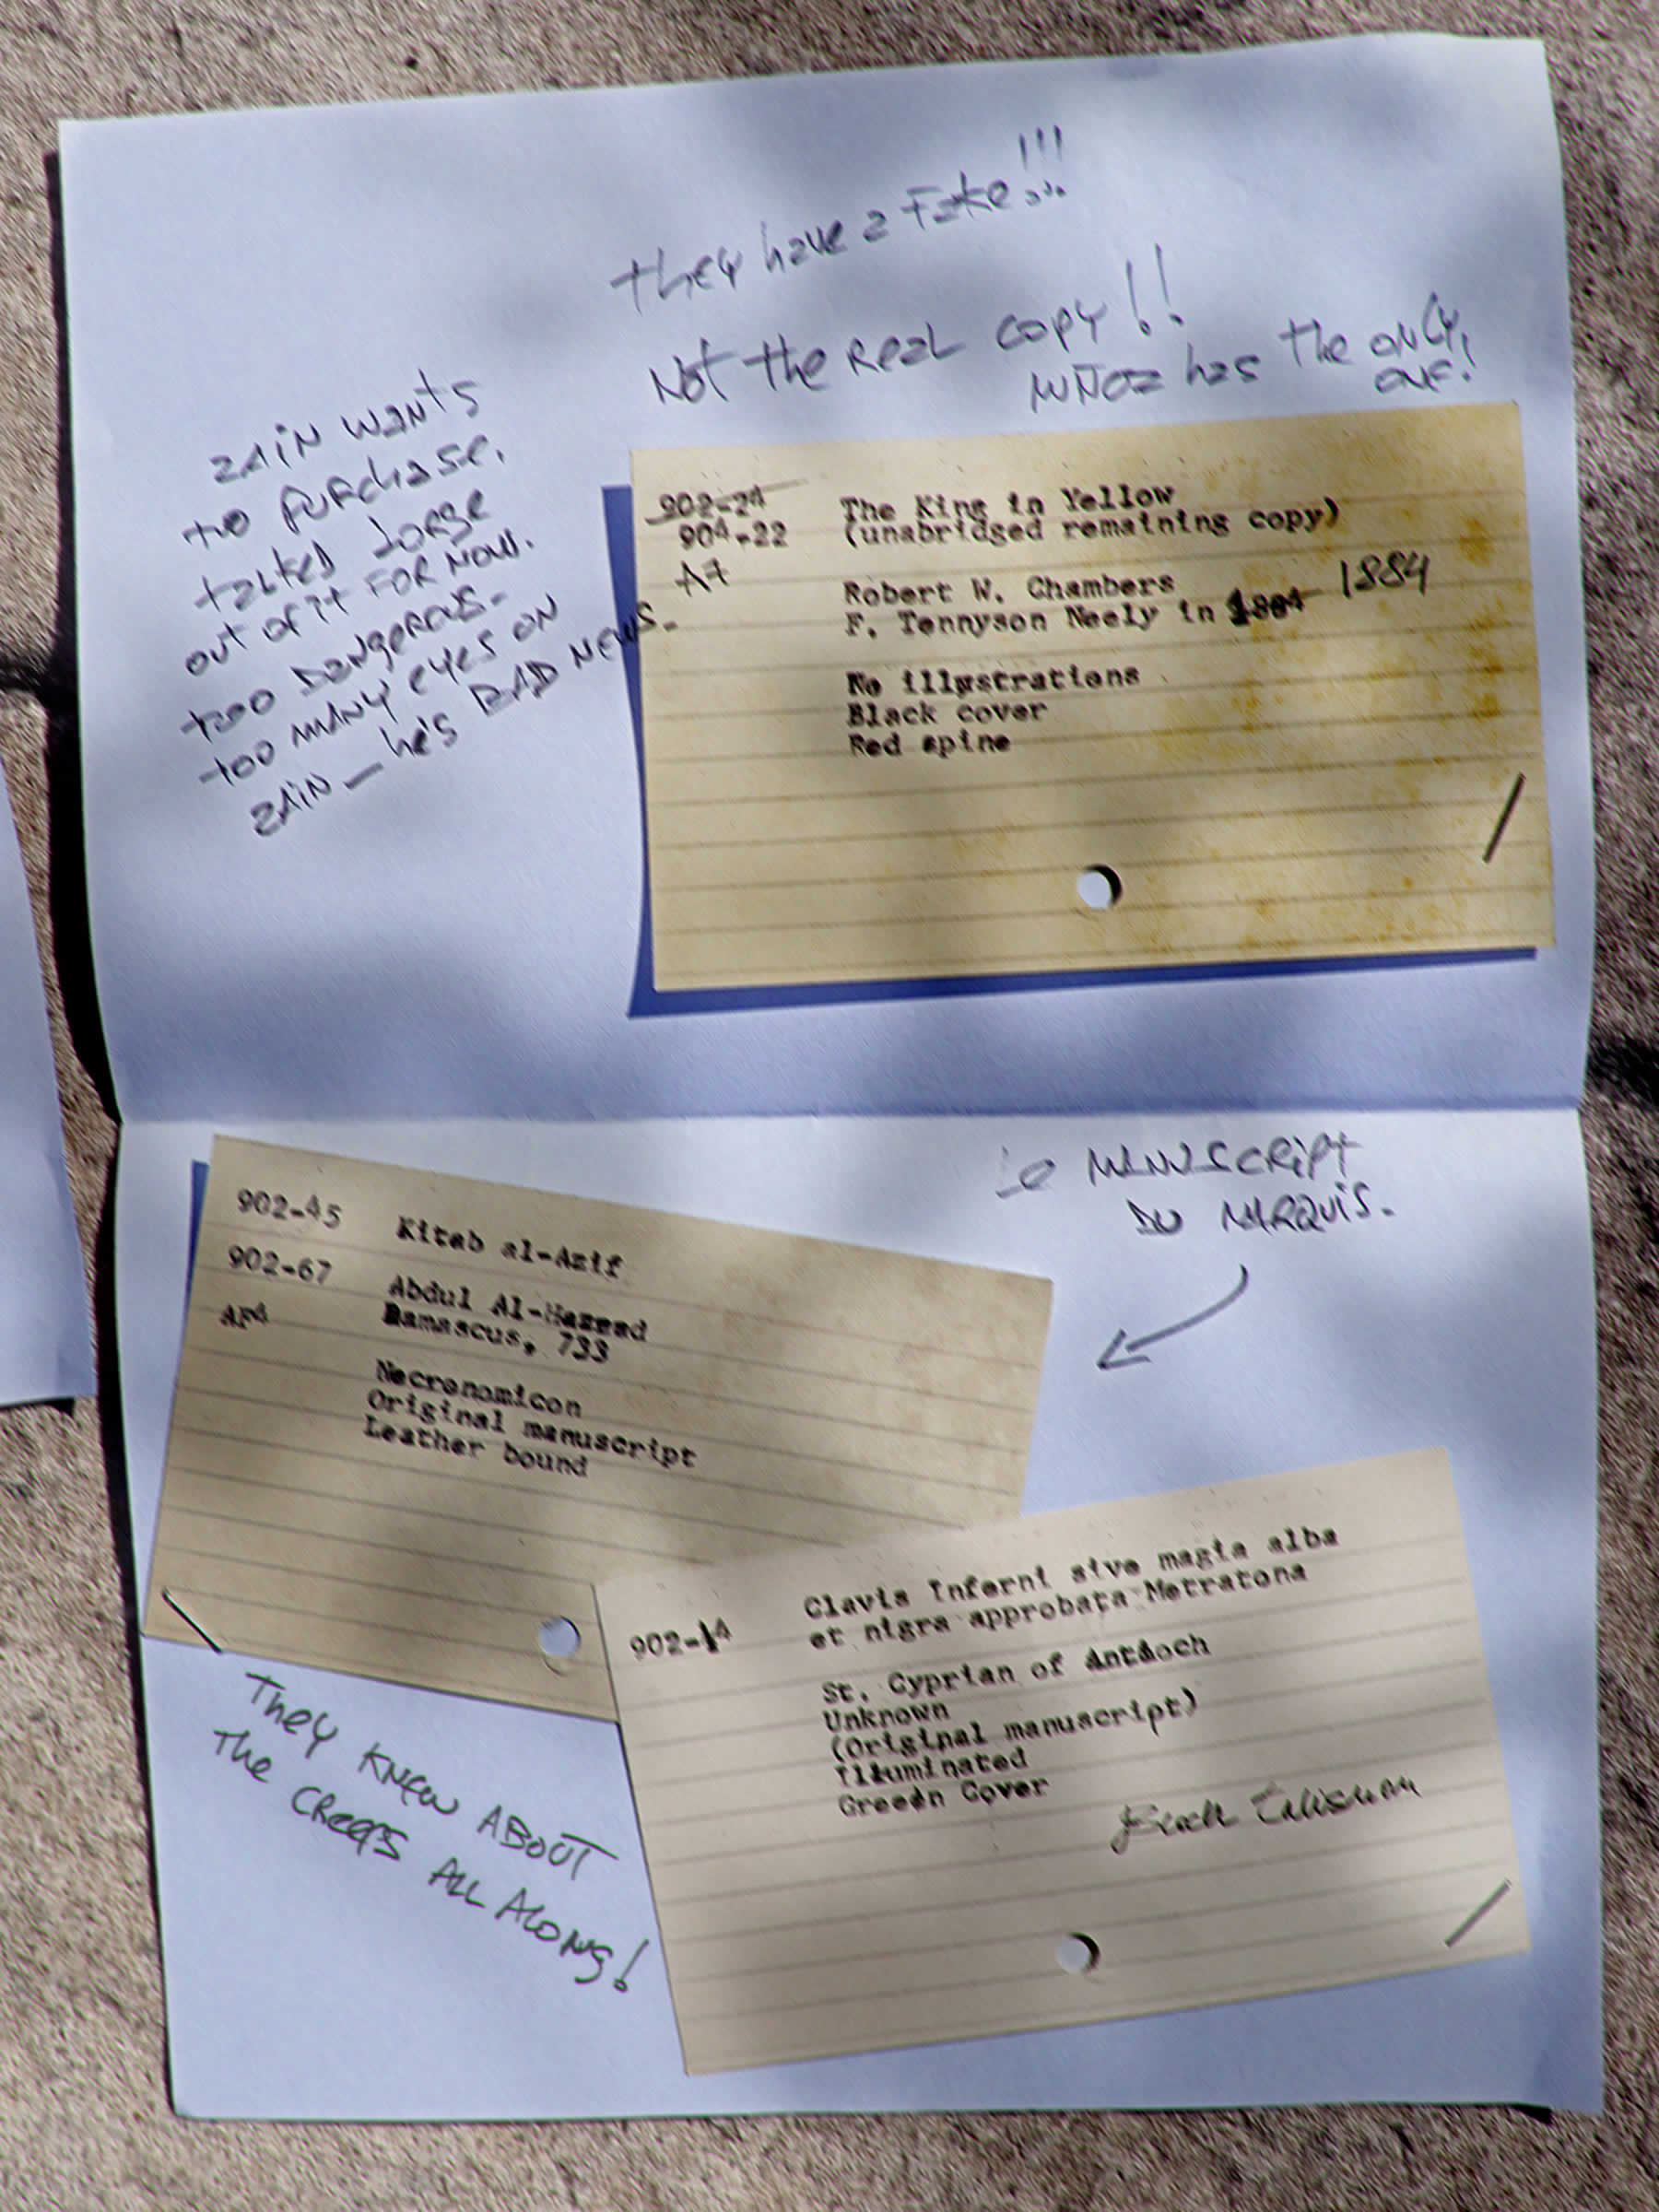 they have a Fake!!!
Not the Real copy!!
Muñoz has the only
one!
zain wants
to purchase.
talked Jorge
out of it for now.
too Dangerous-
too many eyes on
zain — he's BAD NEWS.
902-24
904-22
A7
The King in Yellow
(unabridged remaining copy)
Robert W. Chambers
F. Tennyson Neely in 1884
No illustrations
Black cover
Red spine
Le Manuscript
Du Marquis.
902-45 Kitab al-Azif
902-67 Abdul Al-Hazred
AF4 Damascus, 733
Necronomicon
Original manuscript
Leather bound
They knew ABOUT
The creeps ALL ALONG!
902-14 Clavis Inferni sive magia alba
et nigra approbata Metratona
St. Cyprian of Antioch
Unknown
(Original manuscript)
Illuminated
Green Cover